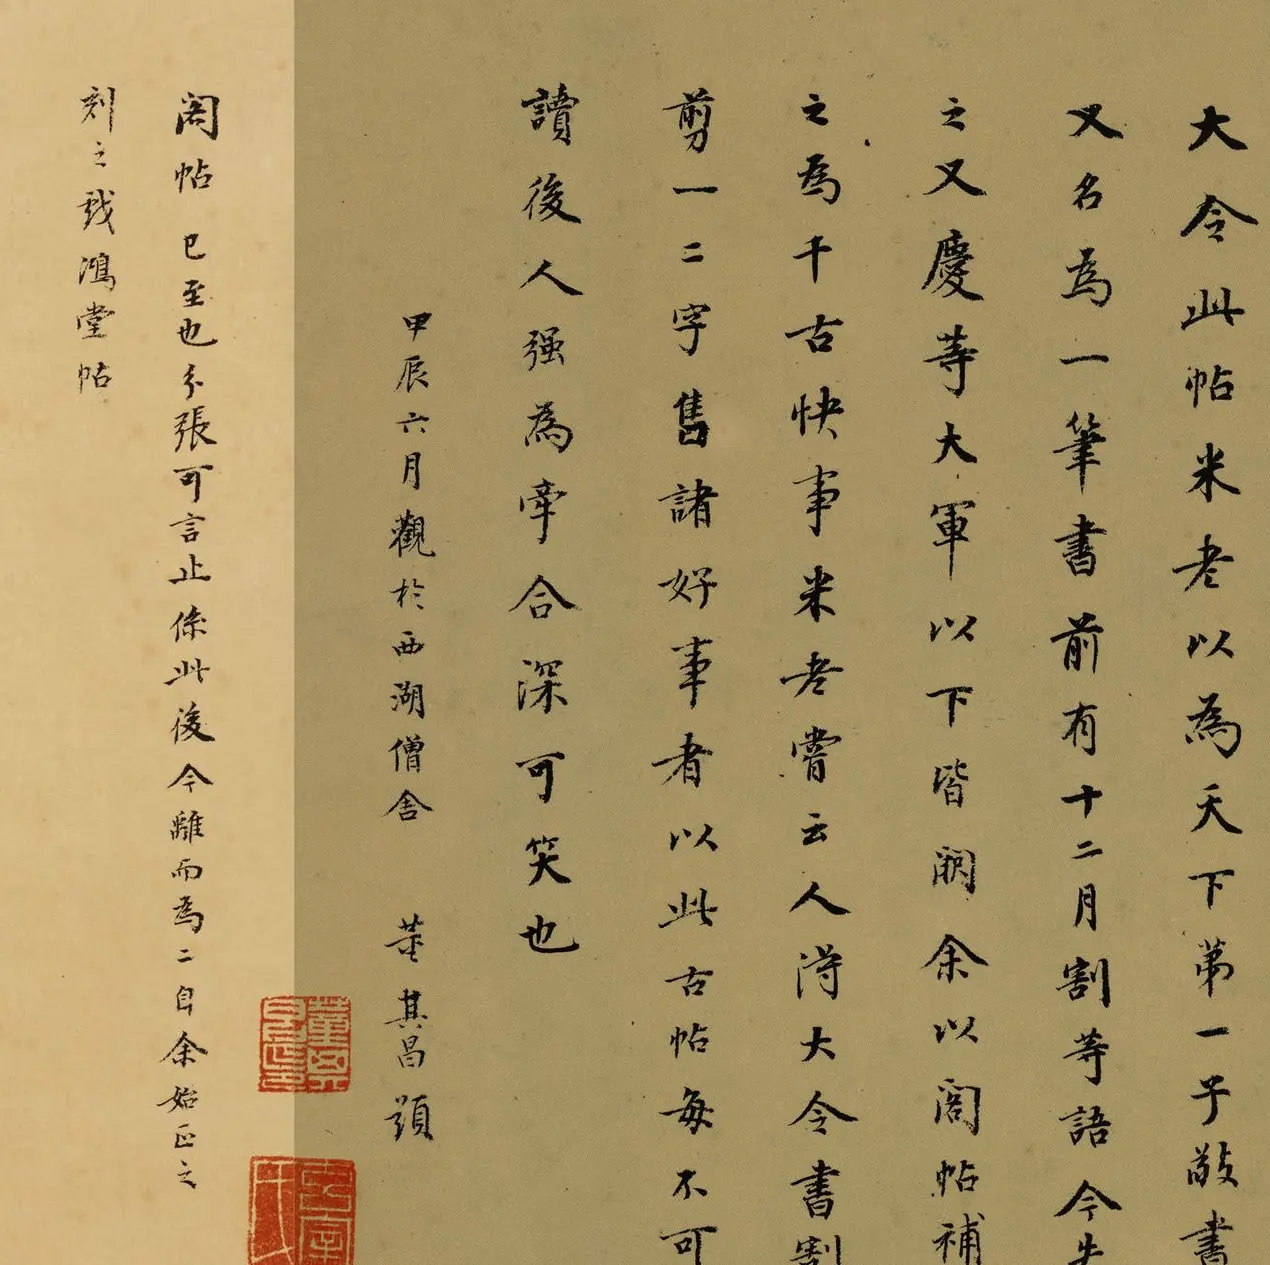 大令此帖米老以為天下第一子敬書
又名為一筆書前有十二月割等語今失
之又慶等大軍以下皆闕余以閣帖補
之為千古快事米老嘗云人得大令書割
剪一二字售諸好事者以此古帖每不可
讀後人强為牽合深可笑也
甲辰六月觀於西湖僧舍 董其昌題
閣帖已至也分張可言止係此後今離而為二自余始正之
刻之戏鴻堂帖